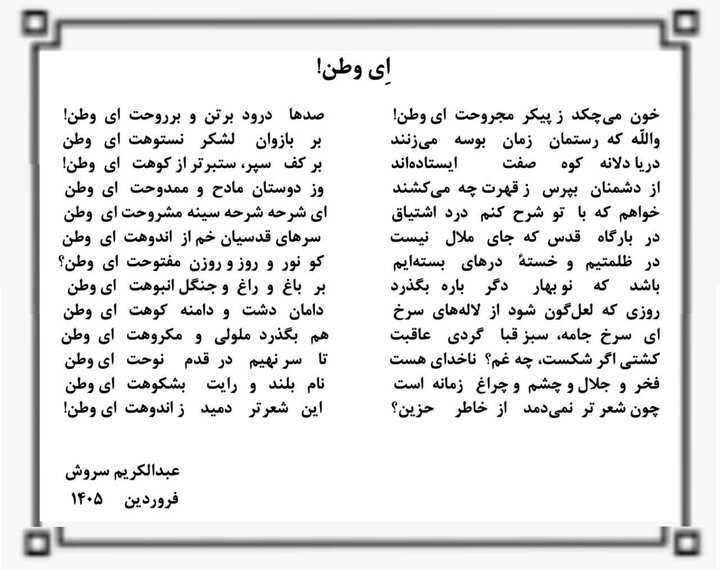 اِی وطن!
خون می‌چکد ز پیکر مجروحت ای وطن! صدها درود برتن و برروحت ای وطن!
واللّه که رستمان زمان بوسه می‌زنند بر بازوان لشکر نستوهت ای وطن
دریا دلانه کوه صفت ایستاده‌اند بر کف سپر، ستبرتر از کوهت ای وطن!
از دشمنان بپرس ز قهرت چه می‌کشند وز دوستان مادح و ممدوحت ای وطن
خواهم که با تو شرح کنم درد اشتیاق ای شرحه شرحه سینه مشروحت ای وطن
در بارگاه قدس که جای ملال نیست سرهای قدسیان خم از اندوهت ای وطن
در ظلمتیم و خستهٔ درهای بسته‌ایم کو نور و روز و روزن مفتوحت ای وطن؟
باشد که نو بهار دگر باره بگذرد بر باغ و راغ و جنگل انبوهت ای وطن
روزی که لعل‌گون شود از لاله‌های سرخ دامان دشت و دامنه کوهت ای وطن
ای سرخ جامه، سبز قبا گردی عاقبت هم بگذرد ملولی و مکروهت ای وطن
کشتی اگر شکست، چه غم؟ ناخدای هست تا سر نهیم در قدم نوحت ای وطن
فخر و جلال و چشم و چراغ زمانه است نام بلند و رایت بشکوهت ای وطن
چون شعر تر نمی‌دمد از خاطر حزین؟ این شعرتر دمید ز اندوهت ای وطن!
عبدالکریم سروش
فروردین ۱۴۰۵